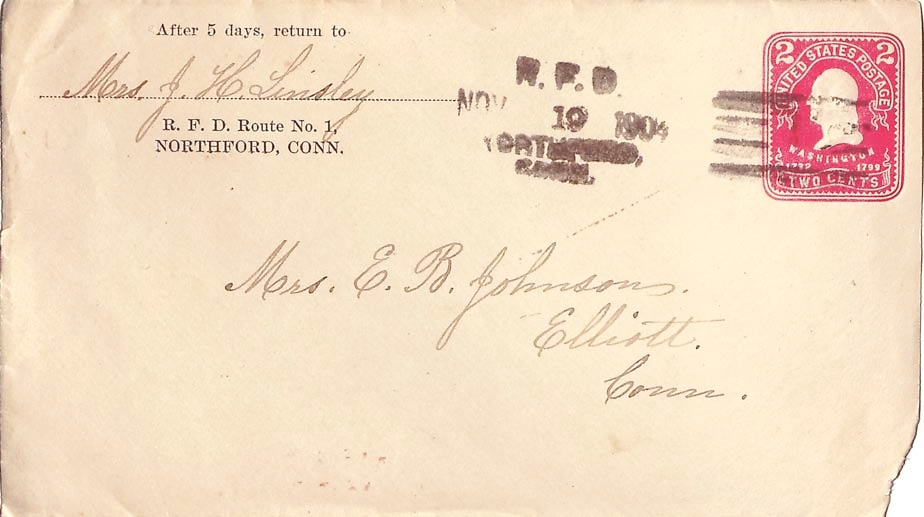 After 5 days, return to
Mrs. J. H. Linsley
R. F. D. Route No. 1,
NORTHFORD, CONN.
R. F. D.
NOV 19 1904
NORTHFORD,
CONN.
2 2
UNITED STATES POSTAGE
WASHINGTON
1732 1799
TWO CENTS
Mrs. E. B. Johnson.
Elliott.
Conn.